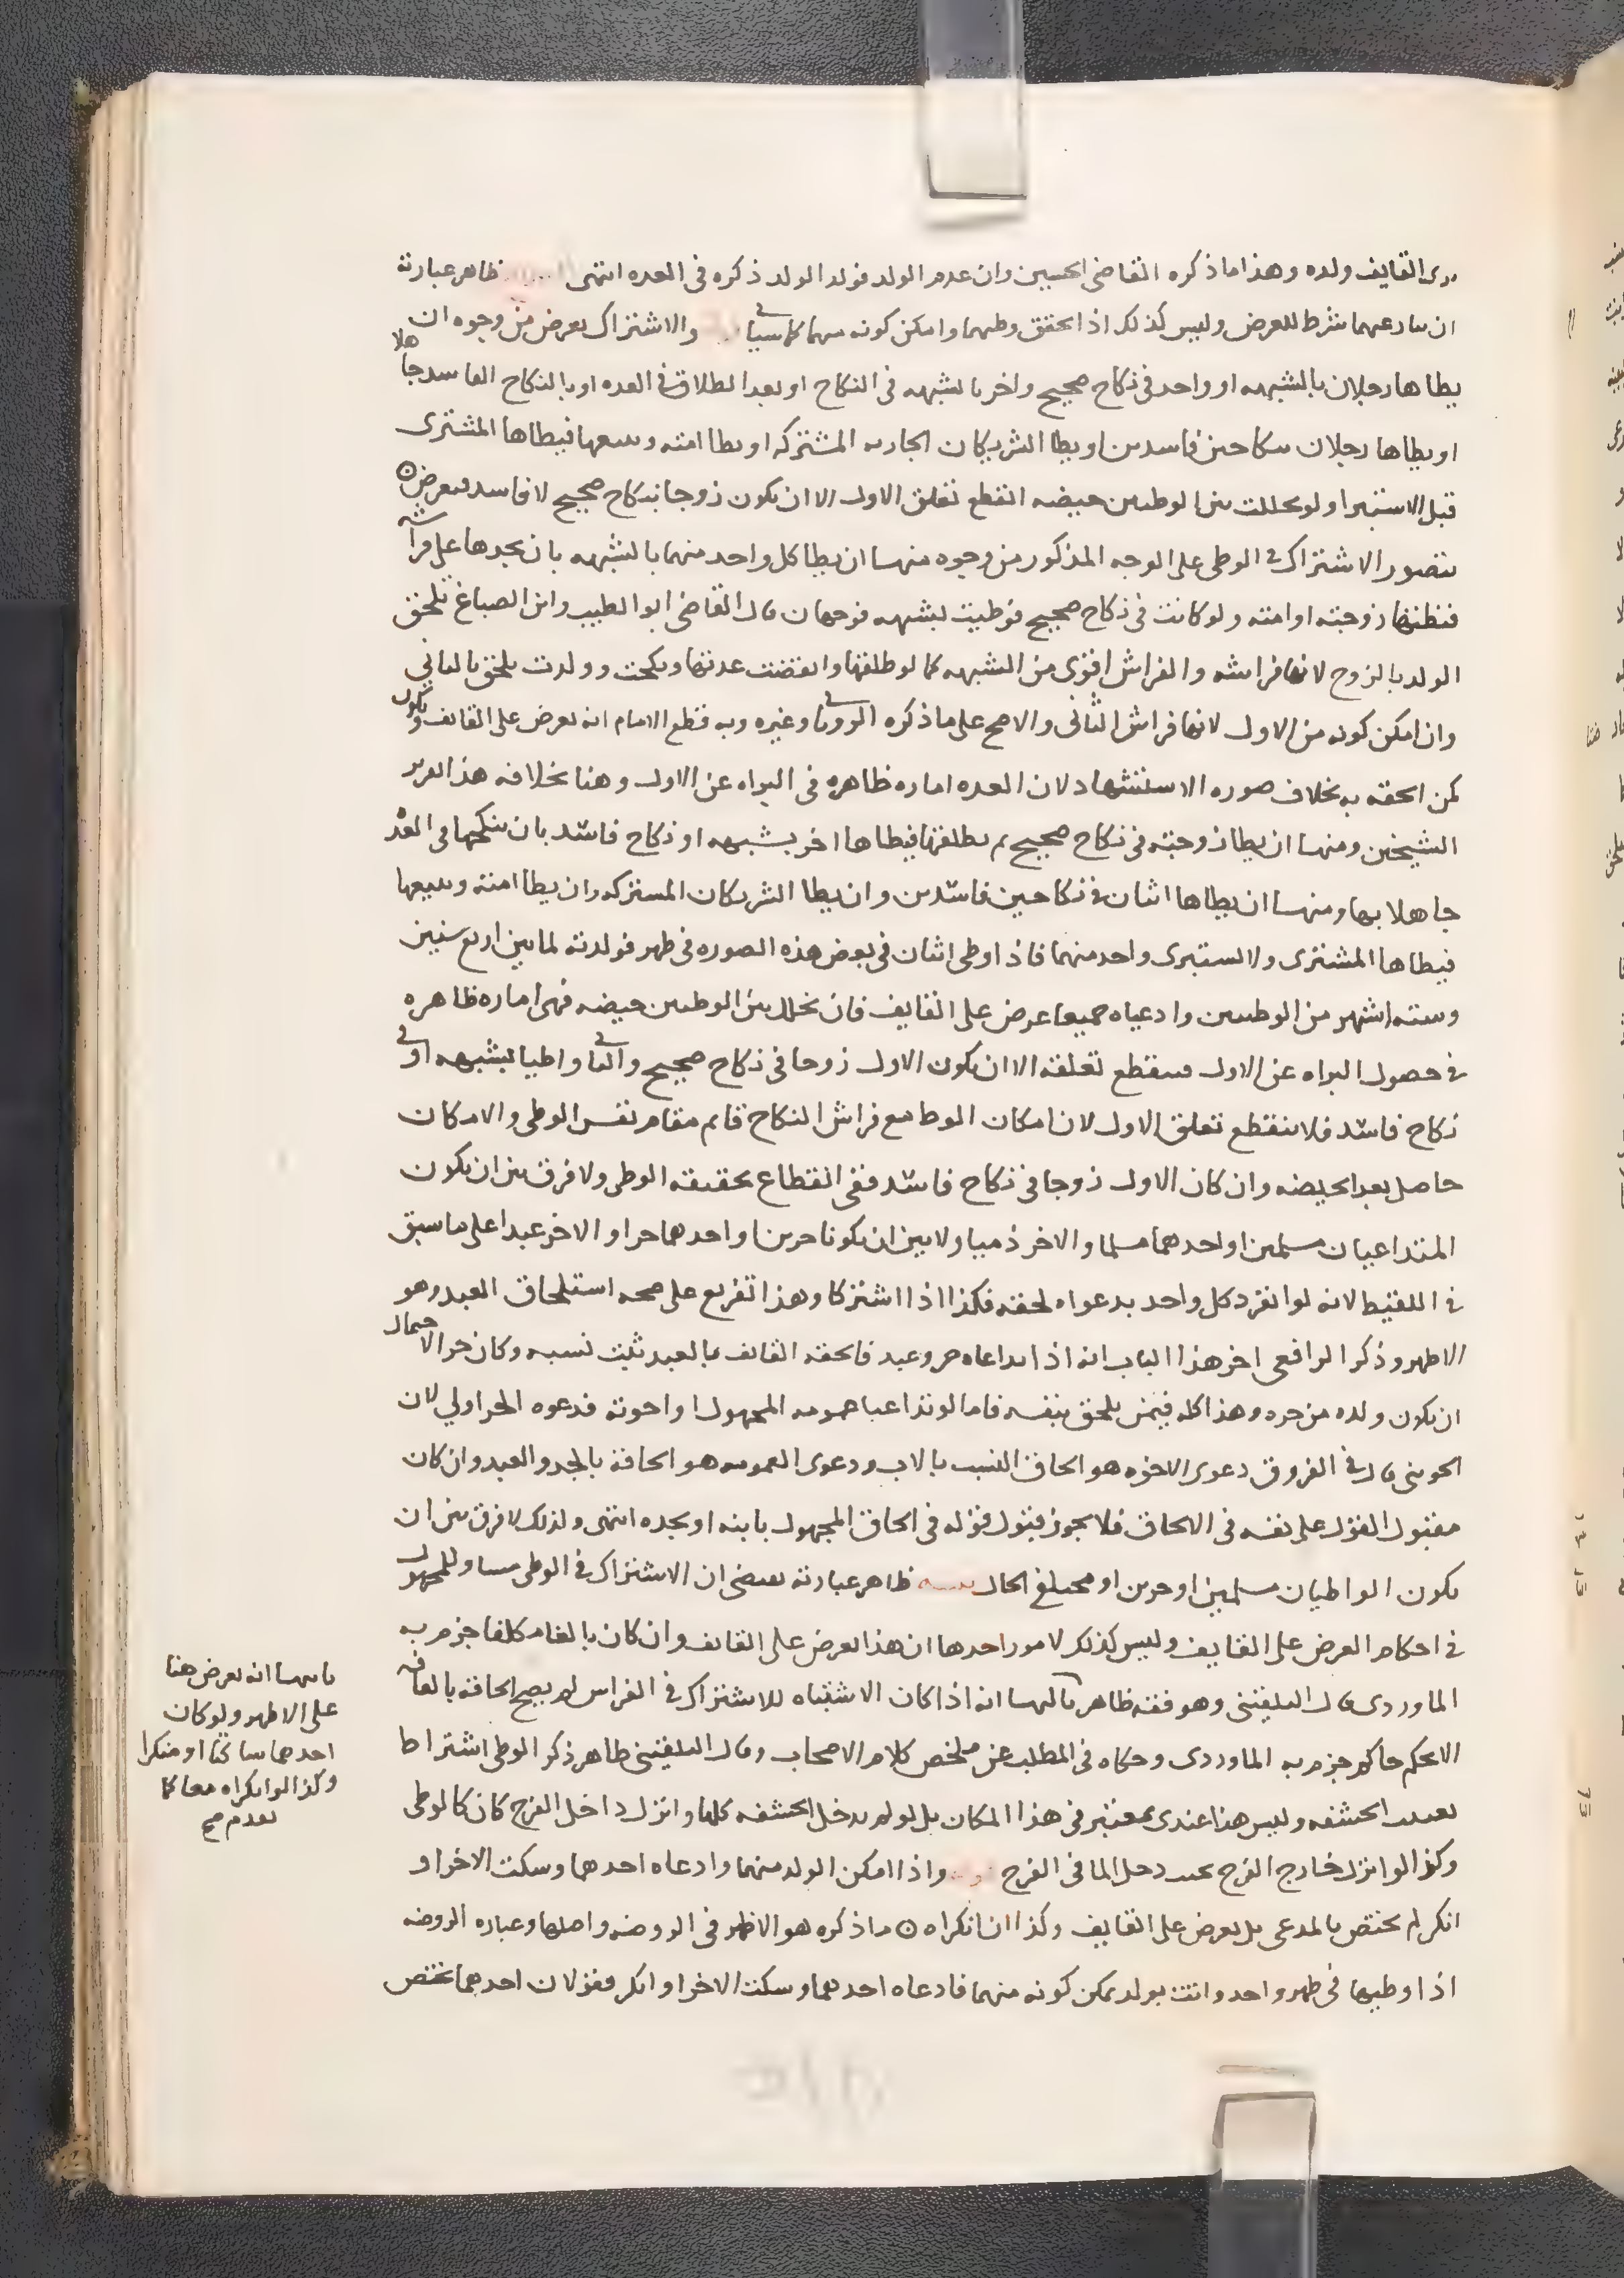 يرى القايف ولده وهذا ما ذكره القاضي الحسين وان عدم الولد فولد الولد ذكره في العده انتهى ظاهر عبارته
ان تنازعهما شرط للعرض وليس كذلك اذا تحقق وطيهما وامكن كونه منهما كما سياتي والاشتراك يعرض من وجوه ان
يطاها رجلان بالشبهه او واحد في نكاح صحيح واخر بالشبهه في النكاح او بعد الطلاق في العده او بالنكاح الفاسد جاهلا
او يطاها رجلان بنكاحين فاسدين او يطا الشريكان الجاريه المشتركه او يطا امته ويبيعها فيطاها المشترى
قبل الاستبرا ولو تخللت بين الوطيين حيضه انقطع تعلق الاول الا ان يكون زوجا بنكاح صحيح لا فاسد فيعرض
يتصور الاشتراك في الوطى على الوجه المذكور من وجوه منها ان يطا كل واحد منهما بالشبهه بان يجدها على فراشه
فيظنها زوجته او امته ولو كانت في نكاح صحيح فوطيت بشبهه فوجهان قال القاضي ابو الطيب وابن الصباغ يلحق
الولد بالزوج لانها فراشه والفراش اقوى من الشبهه كما لو طلقها وانقضت عدتها ونكحت وولدت يلحق بالثاني
وان امكن كونه من الاول لانها فراش الثاني والاصح على ما ذكره الروياني وغيره وبه قطع الامام انه يعرض على القايف ويكون
كمن الحقه به بخلاف صوره الاستشهاد لان العده اماره ظاهره في البراه عن الاول وهنا بخلافه هذا لفظ
الشيخين ومنها ان يطا زوجته في نكاح صحيح ثم يطلقها فيطاها اخر بشبهه او نكاح فاسد بان ينكحها في العده
جاهلا بها ومنها ان يطاها اثنان في نكاحين فاسدين وان يطا الشريكان المشتركه وان يطا امته ويبيعها
فيطاها المشترى ولا يستبرى واحد منهما فاذا وطى اثنان في بعض هذه الصوره في طهر فولدته لما بين اربع سنين
وسته اشهر من الوطيين وادعياه جميعا عرض على القايف فان تخلل بين الوطيين حيضه فهى اماره ظاهره
في حصول البراه عن الاول فينقطع تعلقه الا ان يكون الاول زوجا في نكاح صحيح والثاني واطيا بشبهه او في
نكاح فاسد فلا ينقطع تعلق الاول لان امكان الوطا مع فراش النكاح قايم مقام نفس الوطى والامكان
حاصل بعد الحيضه وان كان الاول زوجا في نكاح فاسد ففي انقطاع بحقيقه الوطى ولا فرق بين ان يكون
المتداعيان مسلمين او احدهما مسلما والاخر ذميا ولا بين ان يكونا حرين او احدهما حرا والاخر عبدا على ما سبق
في اللقيط لانه لو انفرد كل واحد بدعواه لحقه فكذا اذا اشتركا وهذا تفريع على صحه استلحاق العبد وهو
الاظهر وذكر الرافعي اخر هذا الباب انه اذا تداعاه حر وعبد فالحقه القايف بالعبد ثبت نسبه وكان حرا لاحتمال
ان يكون ولده من حره وهذا كله فيمن يلحق بنفسه فاما لو تداعيا عمومه المجهول او اخوته فدعوه الحر اولي لان
الجويني قال في الفروق دعوى الاخوه هو الحاق النسب بالاب ودعوى العمومه هو الحاقه بالجد والعبد وان كان
مقبول القول على نفسه في الالحاق فلا يجوز قبول قوله في الحاق المجهول بابنه او بجده انتهى ولذلك لا فرق بين ان
يكون الواطيان مسلمين او حرين او مختلفي الحال تنبيه ظاهر عبارته يقتضى ان الاشتراك في الوطى مساو للمجهول
في احكام العرض على القايف وليس كذلك لامور احدها ان هذا يعرض على القايف وان كان بالغا مكلفا جزم به
الماوردى قال البلقيني وهو فقه ظاهر ثالثها انه اذا كان الاشتباه للاشتراك في الفراش لم يصح الحاقه بالقافه
الا بحكم حاكم جزم به الماوردى وحكاه في المطلب عن ملخص كلام الاصحاب وقال البلقيني ظاهر ذكر الوطى اشتراط
تغييب الحشفه وليس هذا عندى بمعتبر في هذا المكان بل لو لم يدخل الحشفه كلها وانزل داخل الفرج كان كالوطى
وكذا لو انزل خارج الفرج بحيث دخل الما في الفرج واذا امكن الولد منهما وادعاه احدهما وسكت الاخر او
انكر لم يختص بالمدعى بل يعرض على القايف وكذا ان انكراه ما ذكره هو الاظهر في الروضه واصلها وعباره الروضه
اذا وطيها في طهر واحد واتت بولد يمكن كونه منهما فادعاه احدهما وسكت الاخر او انكر فقولان احدهما يختص
ثانيها انه يعرض هنا
على الاظهر ولو كان
احدهما ساكتا او منكرا
وكذا لو انكراه معا كما
تقدم صح